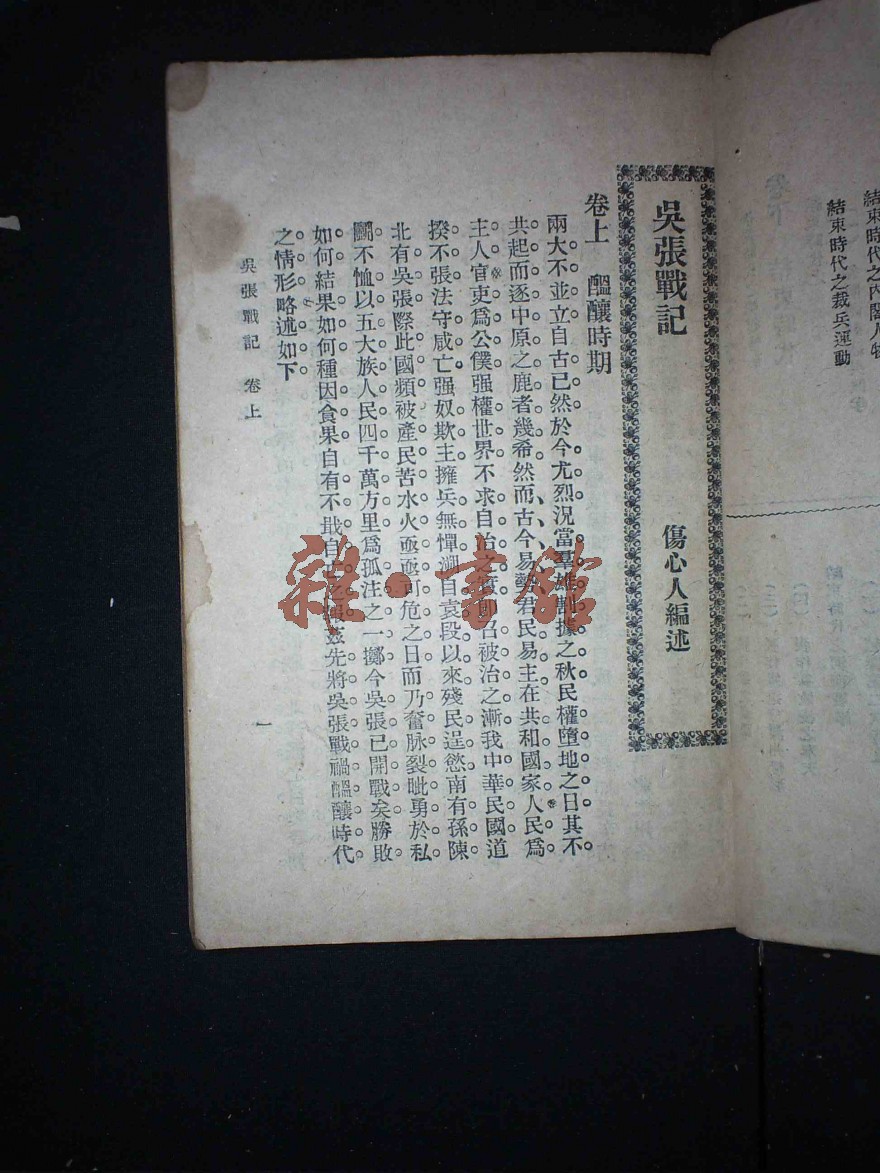 結束時代之內閣人物
結束時代之裁兵運動
吳張戰記
傷心人編述
卷上 醞釀時期
兩大不並立自古已然於今尤烈況當羣雄割據之秋民權墮地之日其不
共起而逐中原之鹿者幾希然而古今易勢君民易主在共和國家人民爲
主人官吏爲公僕强權世界不求自治之實卽召被治之漸我中華民國道
揆不張法守咸亡强奴欺主擁兵無憚溯自袁段以來殘民逞慾南有孫陳
北有吳張際此國頻被產民苦水火亟亟可危之日而乃奮脉裂眦勇於私
鬭不恤以五大族人民四千萬方里爲孤注之一擲今吳張已開戰矣勝敗
如何結果如何種因食果自有不戢自之報茲先將吳張戰禍醞釀時代
之情形略述如下
吳張戰記 卷上
一
雜·書館